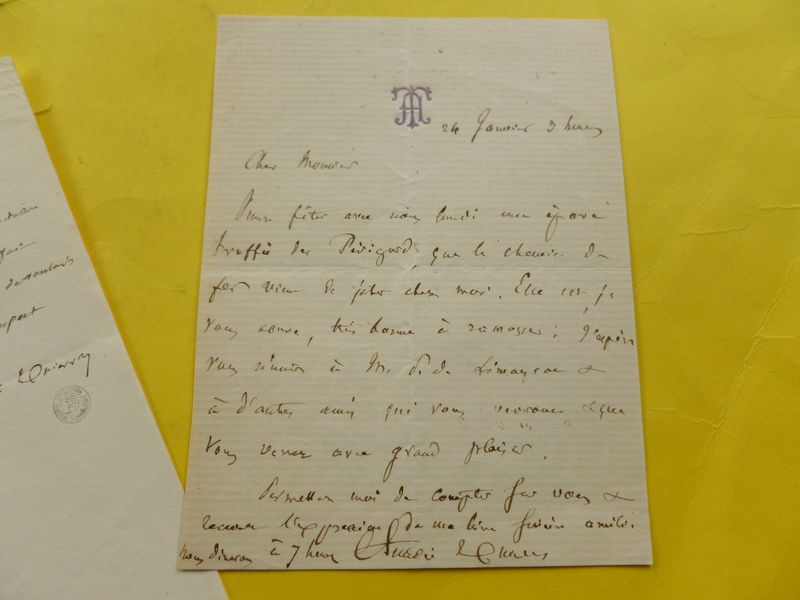 24 Janvier 3 heures
Cher Monsieur
fêter avec nous lundi une
truffée du Périgord, que le chemin de
fer vient de jeter chez moi. Elle est, je
vous assure, très bonne à ramasser; J'espère
vous réunir à Mr. de
à d'autres amis qui vous verront & que
vous verrez avec grand plaisir.
Permettez moi de compter sur vous &
recevez l'expression de ma bien sincère amitié
nous dinerons à 7 heures Amédée Thierry
Thierry